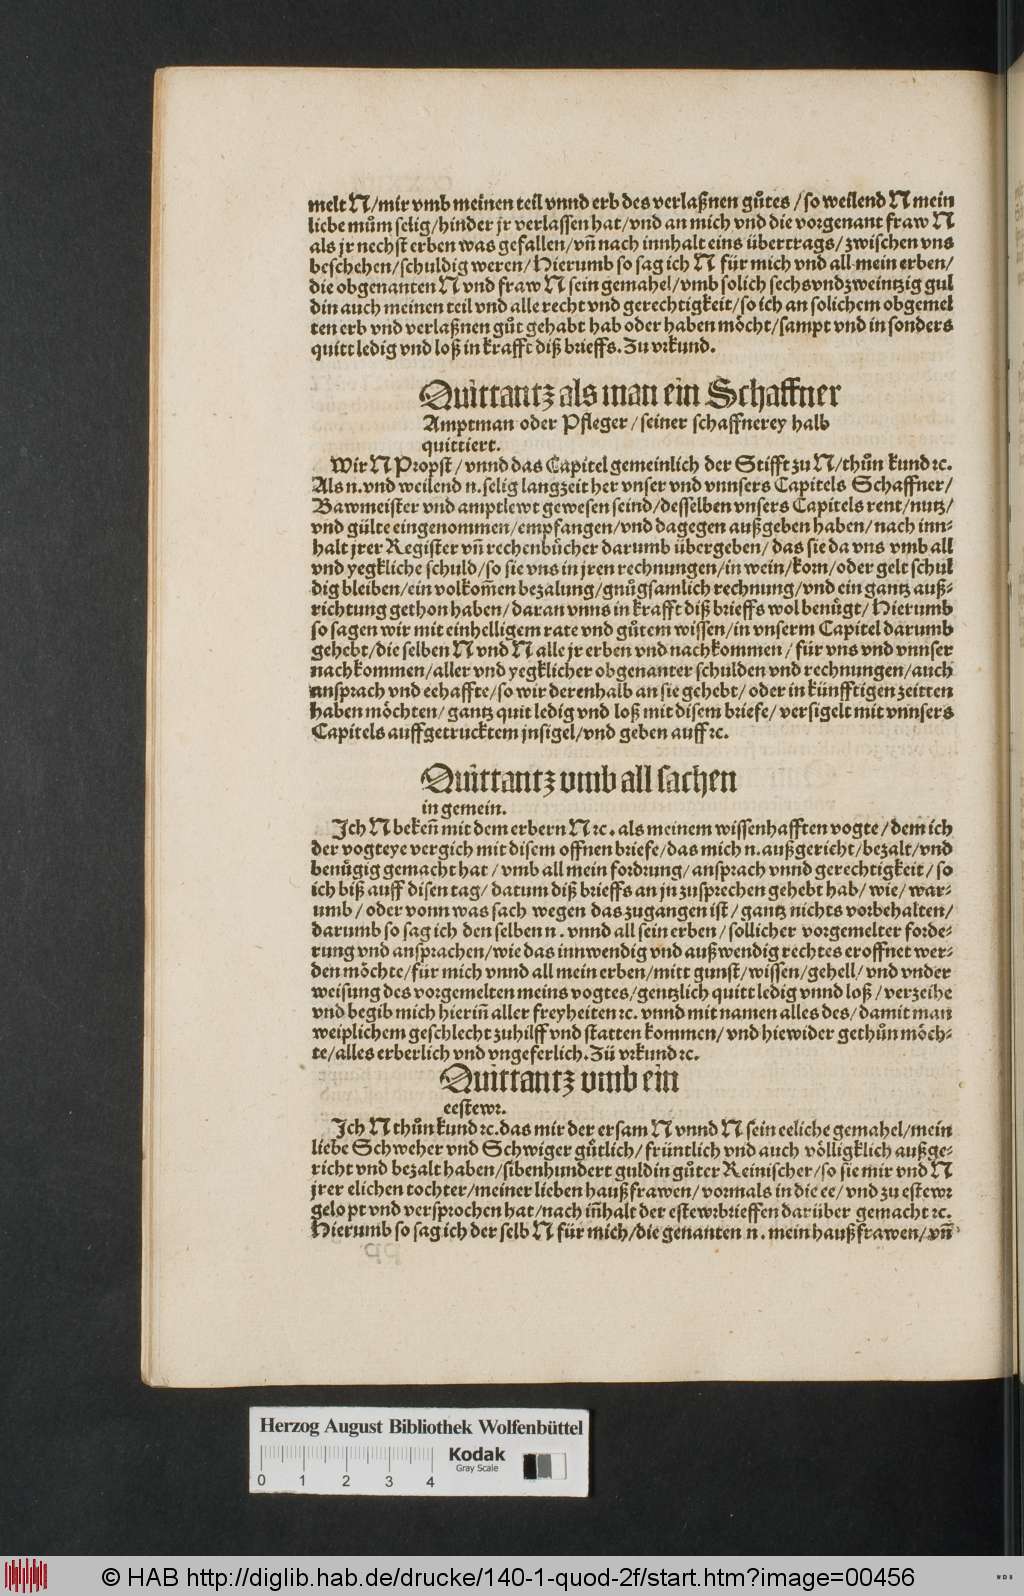 melt N/mir vmb meinen teil vnnd erb des verlaßnen guͦtes/so weilend N mein
liebe muͦm selig/hinder jr verlassen hat/vnd an mich vnd die vorgenant fraw N
als jr nechst erben was gefallen/vn̄ nach innhalt eins übertrags/zwischen vns
beschehen/schuldig weren/Hierumb so sag ich N für mich vnd all mein erben/
die obgenanten N vnd fraw N sein gemahel/vmb solich sechsvndzweintzig gul
din auch meinen teil vnd alle recht vnd gerechtigkeit/so ich an solichem obgemel
ten erb vnd verlaßnen guͦt gehabt hab oder haben möcht/sampt vnd in sonders
quitt ledig vnd loß in krafft diß brieffs. Zu vrkund.
Quittantz als man ein Schaffner
Amptman oder Pfleger/seiner schaffnerey halb
quittiert.
Wir N Propst/vnnd das Capitel gemeinlich der Stifft zu N/thuͦn kund ꝛc.
Als n. vnd weilend n. selig langzeit her vnser vnd vnnsers Capitels Schaffner/
Bawmeister vnd amptlewt gewesen seind/desselben vnsers Capitels rent/nutz/
vnd gülte eingenommen/empfangen/vnd dagegen außgeben haben/nach inn⸗
halt jrer Register vn̄ rechenbuͤcher darumb übergeben/das sie da vns vmb all
vnd yegkliche schuld/so sie vns in jren rechnungen/in wein/korn/oder gelt schul
dig bleiben/ein volkom̄en bezalung/gnuͦgsamlich rechnung/vnd ein gantz auß⸗
richtung gethon haben/daran vnns in krafft diß brieffs wol benuͤgt/Hierumb
so sagen wir mit einhelligem rate vnd guͦtem wissen/in vnserm Capitel darumb
gehebt/die selben N vnd N alle jr erben vnd nachkommen/für vns vnd vnnser
nachkommen/aller vnd yegklicher obgenanter schulden vnd rechnungen/auch
ansprach vnd eehaffte/so wir derenhalb an sie gehebt/oder in künfftigen zeitten
haben möchten/gantz quit ledig vnd loß mit disem briefe/versigelt mit vnnsers
Capitels auffgetrucktem jnsigel/vnd geben auff ꝛc.
Quittantz vmb all sachen
in gemein.
Ich N beken̄ mit dem erbern N ꝛc. als meinem wissenhafften vogte/dem ich
der vogteye vergich mit disem offnen briefe/das mich n. außgericht/bezalt/vnd
benuͤgig gemacht hat/vmb all mein fordrung/ansprach vnnd gerechtigkeit/so
ich biß auff disen tag/datum diß brieffs an jn zusprechen gehebt hab/wie/war⸗
umb/oder vonn was sach wegen das zugangen ist/gantz nichts vorbehalten/
darumb so sag ich den selben n. vnnd all sein erben/sollicher vorgemelter forde⸗
rung vnd ansprachen/wie das innwendig vnd außwendig rechtes eroffnet wer⸗
den möchte/für mich vnnd all mein erben/mitt gunst/wissen/gehell/vnd vnder
weisung des vorgemelten meins vogtes/gentzlich quitt ledig vnnd loß/verzeihe
vnd begib mich hierin̄ aller freyheiten ꝛc. vnnd mit namen alles des/damit man
weiplichem geschlecht zuhilff vnd statten kommen/vnd hiewider gethuͦn möch⸗
te/alles erberlich vnd vngeferlich. Zuͦ vrkund ꝛc.
Quittantz vmb ein
eestewr.
Ich N thuͦn kund ꝛc. das mir der ersam N vnnd N sein eeliche gemahel/mein
liebe Schweher vnd Schwiger guͤtlich/früntlich vnd auch völligklich außge⸗
richt vnd bezalt haben/sibenhundert guldin guͦter Reinischer/so sie mir vnd N
jrer elichen tochter/meiner lieben haußfrawen/vormals in die ee/vnd zu estewr
gelopt vnd versprochen hat/nach in̄halt der estewrbrieffen darüber gemacht ꝛc.
Hierumb so sag ich der selb N für mich/die genanten n. mein haußfrawen/vn̄
Herzog August Bibliothek Wolfenbüttel
Kodak
Gray Scale
0 1 2 3 4
© HAB http://diglib.hab.de/drucke/140-1-quod-2f/start.htm?image=00456